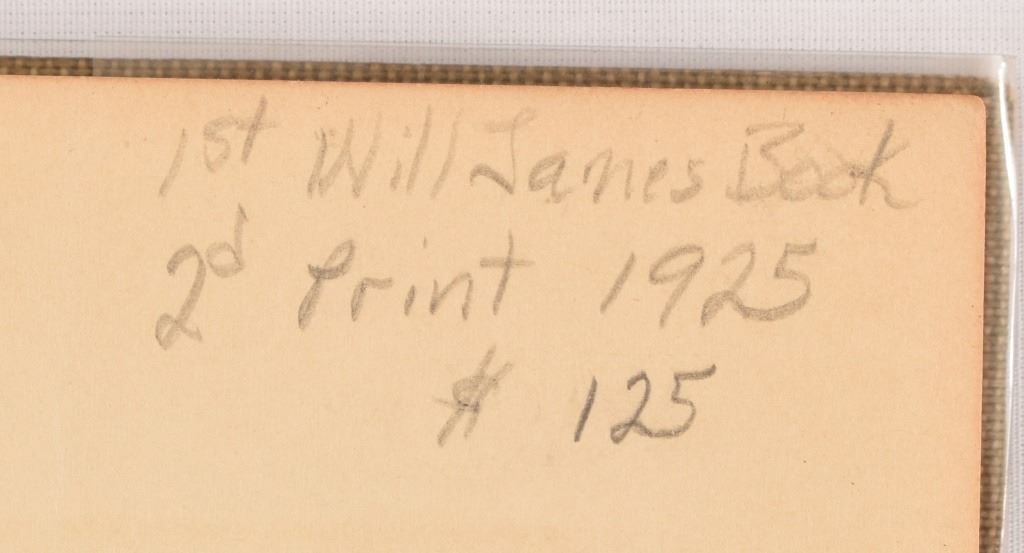 1st Will James Book
2d Print 1925
$ 125